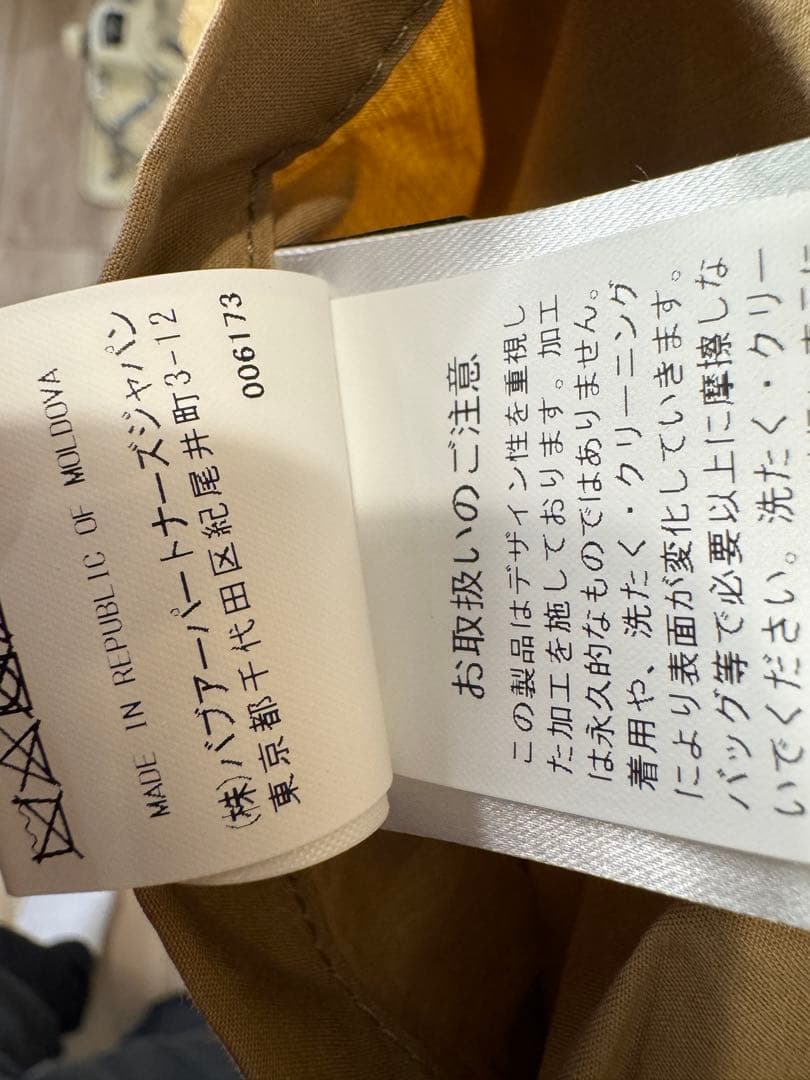 MADE IN REPUBLIC OF MOLDOVA
(株)バブアーパートナーズジャパン
東京都千代田区紀尾井町3-12
006173
お取扱いのご注意
この製品はデザイン性を重視し
た加工を施しております。加工
は永久的なものではありません。
着用や、洗たく・クリーニング
により表面が変化していきます。
バッグ等で必要以上に摩擦しな
いでください。洗たく・クリー